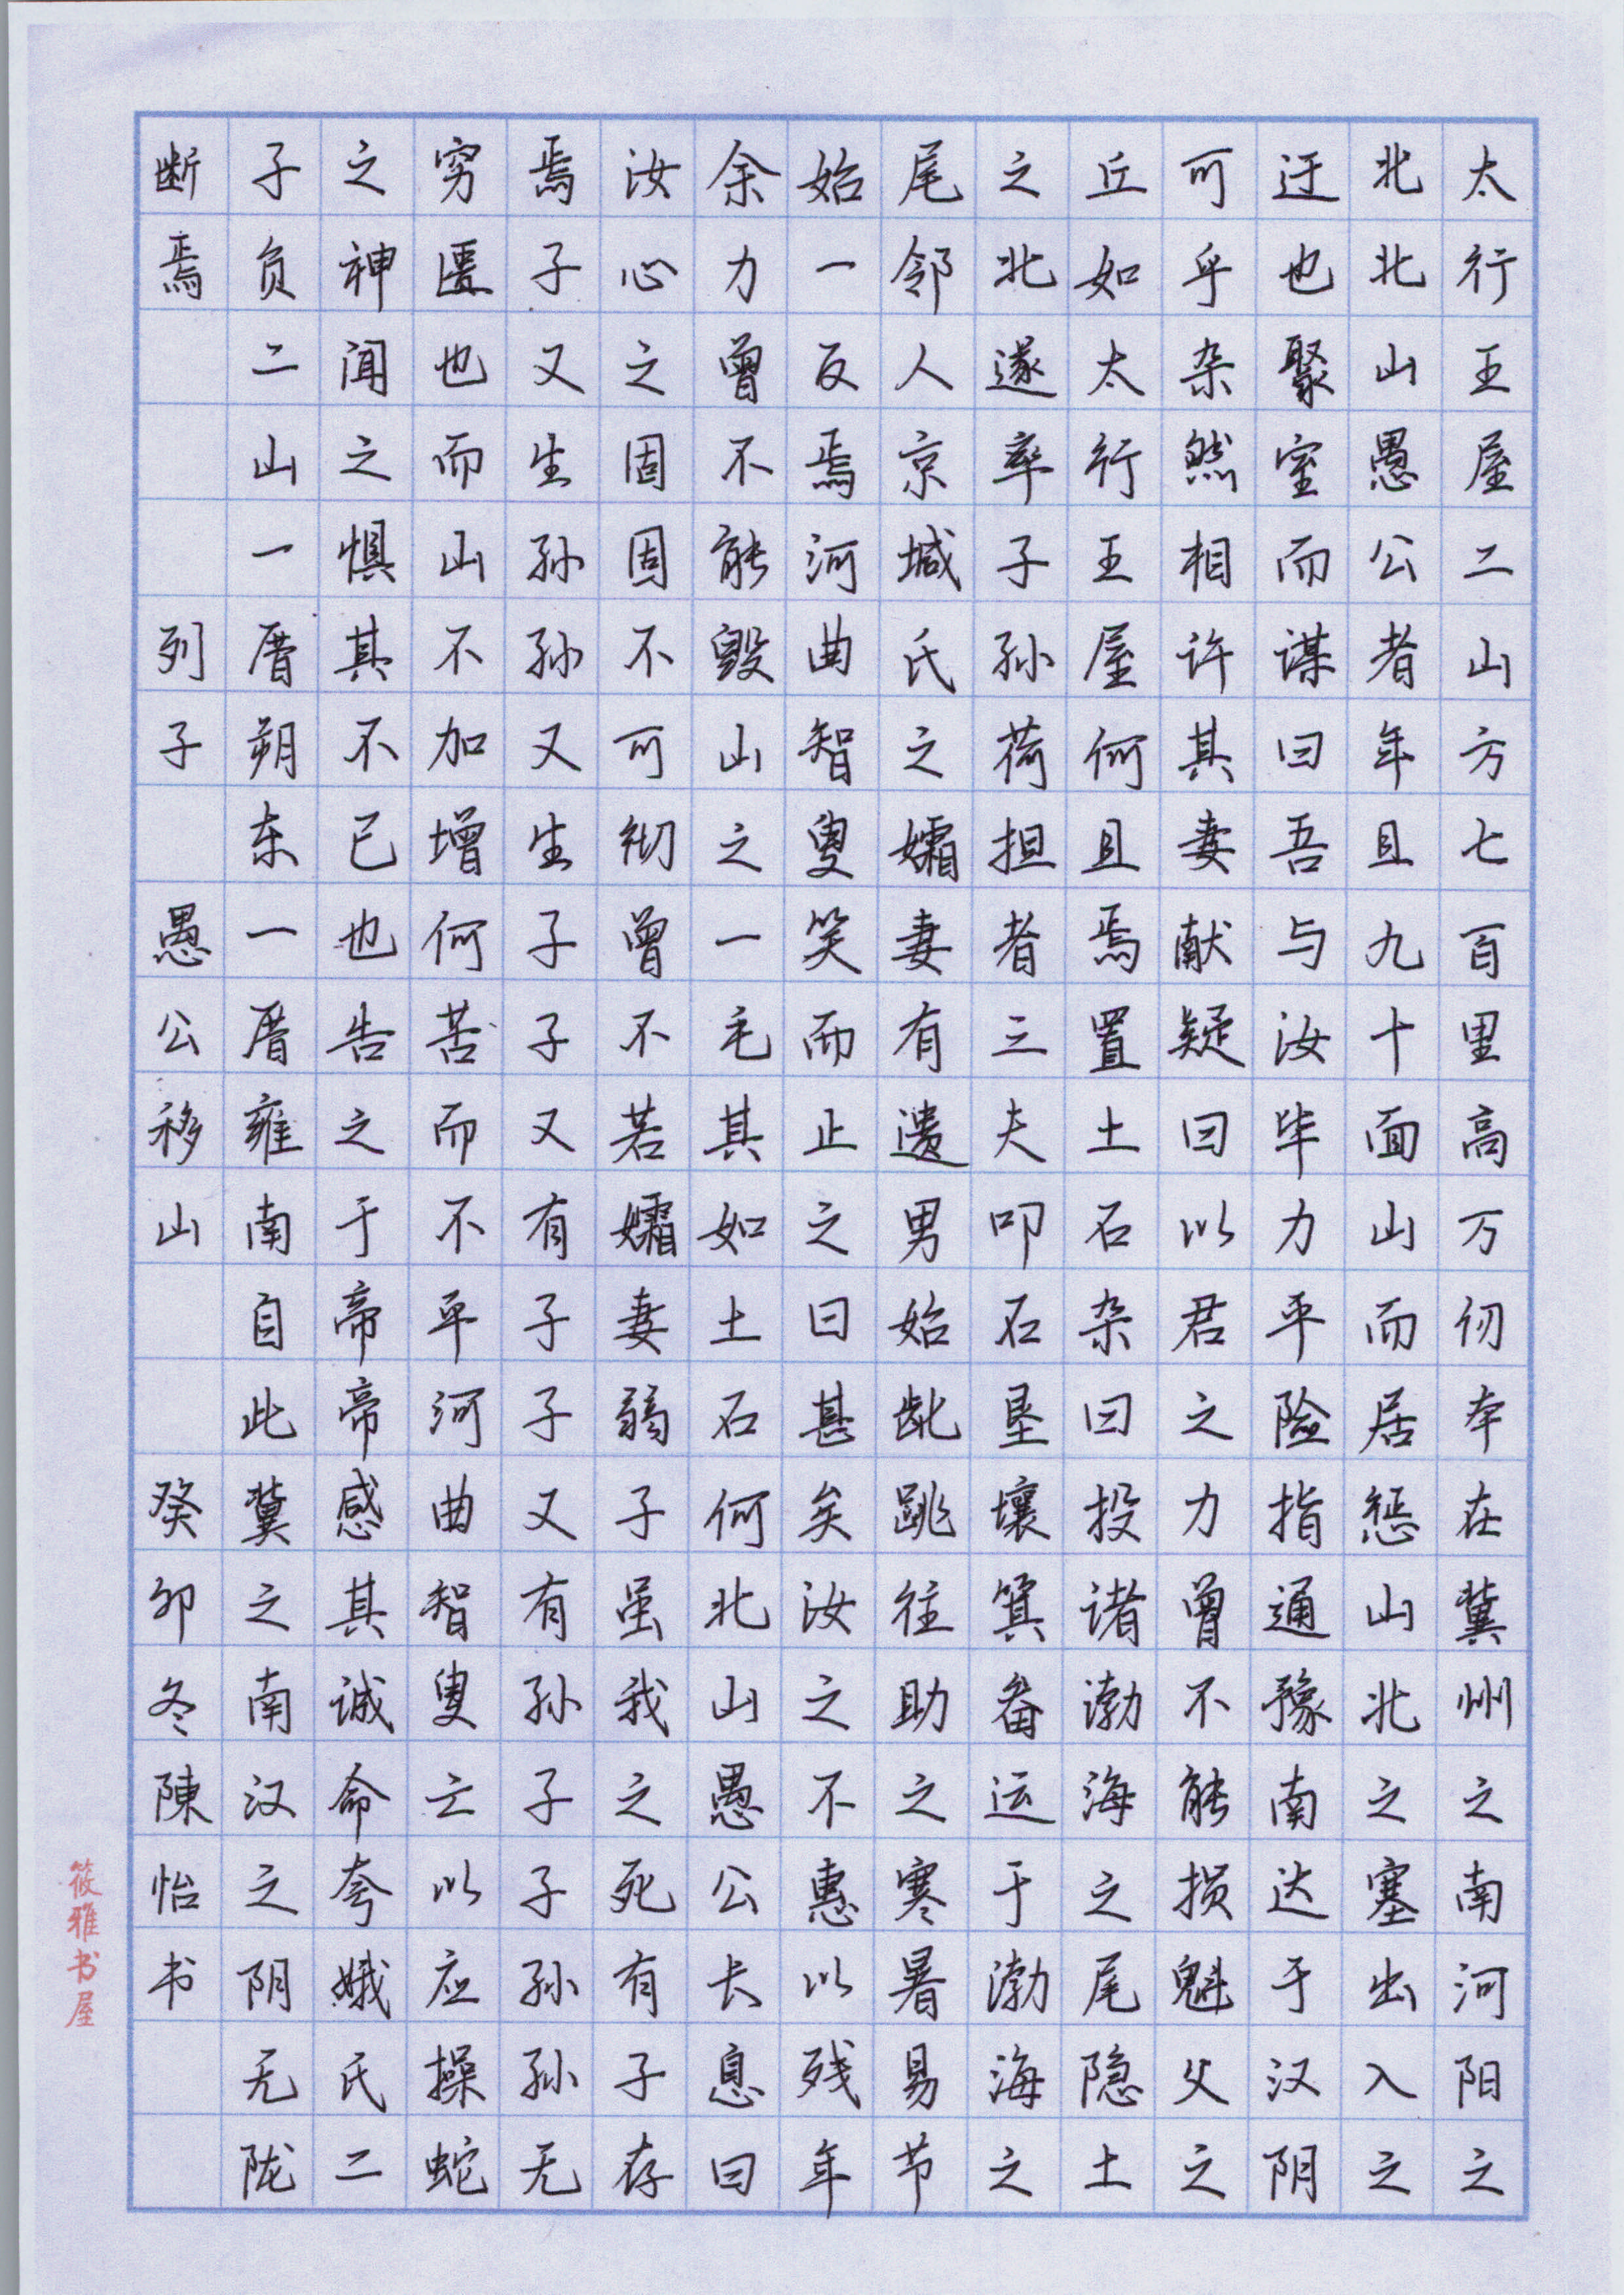 太行王屋二山方七百里高万仞本在冀州之南河阳之
北北山愚公者年且九十面山而居惩山北之塞出入之
迂也聚室而谋曰吾与汝毕力平险指通豫南达于汉阴
可乎杂然相许其妻献疑曰以君之力曾不能损魁父之
丘如太行王屋何且焉置土石杂曰投诸渤海之尾隐土
之北遂率子孙荷担者三夫叩石垦壤箕畚运于渤海之
尾邻人京城氏之孀妻有遗男始龀跳往助之寒暑易节
始一反焉河曲智叟笑而止之曰甚矣汝之不惠以残年
余力曾不能毁山之一毛其如土石何北山愚公长息曰
汝心之固固不可彻曾不若孀妻弱子虽我之死有子存
焉子又生孙孙又生子子又有子子又有孙子子孙孙无
穷匮也而山不加增何苦而不平河曲智叟亡以应操蛇
之神闻之惧其不已也告之于帝帝感其诚命夸娥氏二
子负二山一厝朔东一厝雍南自此冀之南汉之阴无陇
断焉 列子 愚公移山 癸卯冬陳怡书
筱雅书屋